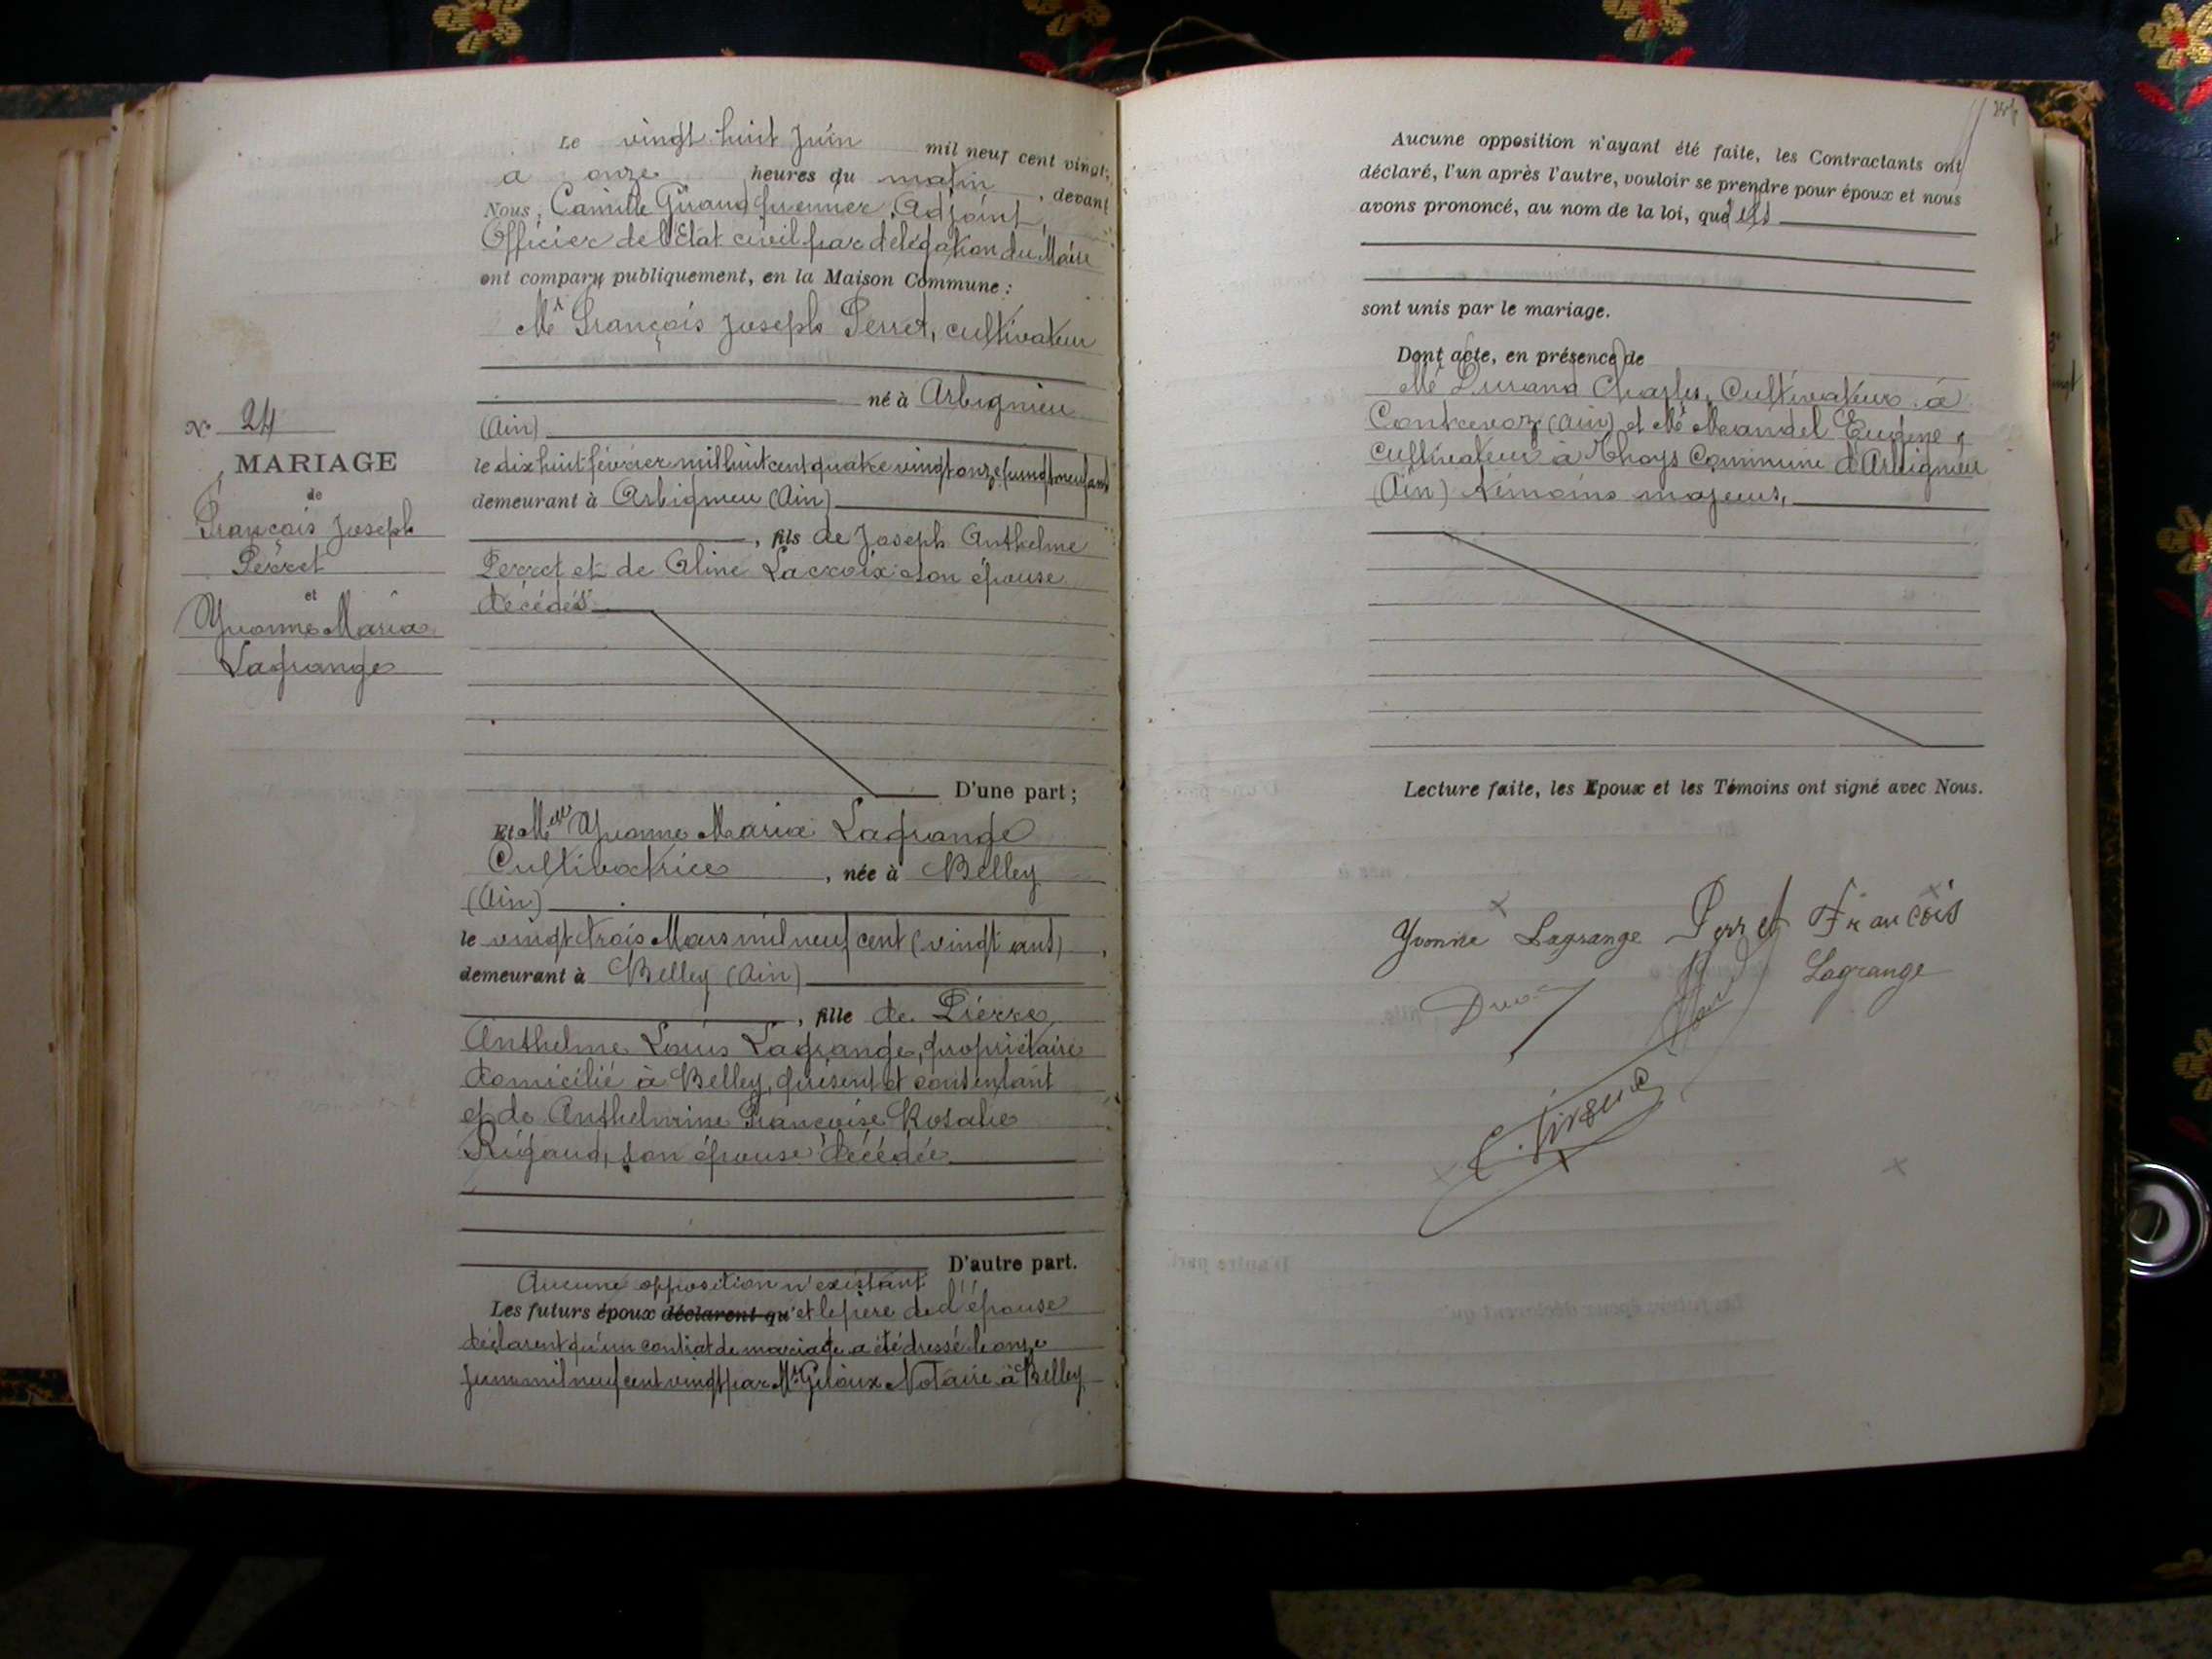 Le vingt huit Juin mil neuf cent vingt,
à onze heures du matin, devant
Nous, Camille Giraud premier Adjoint,
Officier de l'Etat civil par délégation du Maire
ont comparu publiquement, en la Maison Commune :
Mr François Joseph Perret, cultivateur
né à Arbignieu
(Ain)
le dix huit février mil huit cent quatre vingt onze (vingt neuf ans)
demeurant à Arbignieu (Ain)
, fils de Joseph Anthelme
Perret et de Aline Lacroix son épouse
décédés
D'une part ;
N° 24
MARIAGE
de
François Joseph
Perret
et
Yvonne Maria
Lagrange
Et Melle Yvonne Maria Lagrange
Cultivatrice, née à Belley
(Ain)
le vingt trois Mars mil neuf cent (vingt ans),
demeurant à Belley (Ain)
, fille de Pierre
Anthelme Louis Lagrange, propriétaire
domicilié à Belley, présent et consentant
et de Anthelmine Françoise Rosalie
Rigaud, son épouse décédée
D'autre part.
Aucune opposition n'existant
Les futurs époux déclarent qu' et le père de l'épouse
déclarent qu'un contrat de mariage a été dressé le onze
Juin mil neuf cent vingt par Me Notaire à Belley
Aucune opposition n'ayant été faite, les Contractants ont
déclaré, l'un après l'autre, vouloir se prendre pour époux et nous
avons prononcé, au nom de la loi, qu'ils
sont unis par le mariage.
Dont acte, en présence de
Mr Durand Charles, Cultivateur à
Contrevoz (Ain) et Mr Eugène,
cultivateur à Thoys Commune d'Arbignieu
(Ain) témoins majeurs,
Lecture faite, les Epoux et les Témoins ont signé avec Nous.
Yvonne Lagrange Perret François
Lagrange